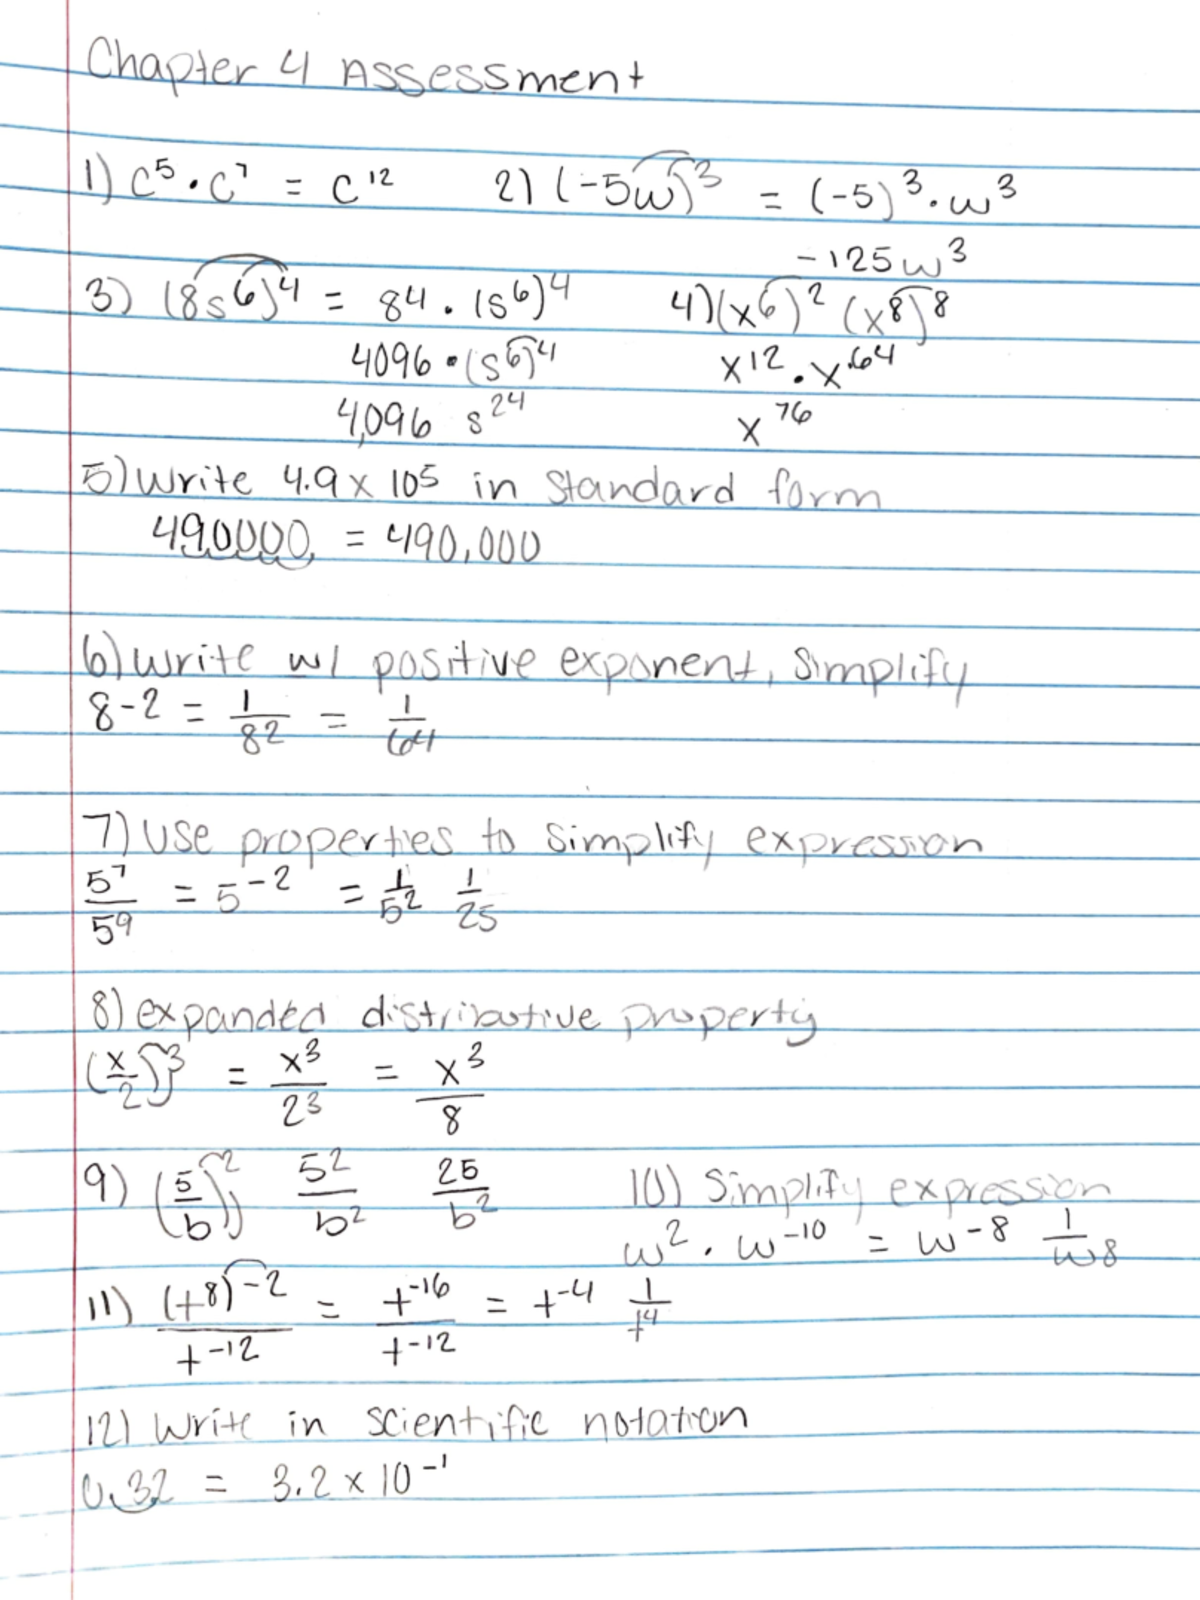 Chapter 4 Assessment
1) c⁵ · c⁷ = c¹² 2) (-5w)³ = (-5)³ · w³
-125w³
3) (8s⁶)⁴ = 8⁴ · (s⁶)⁴ 4) (x⁶)² (x⁸)⁸
4096 · (s⁶)⁴ x¹² · x⁶⁴
4,096 s²⁴ x⁷⁶
5) Write 4.9 x 10⁵ in standard form
490000 = 490,000
6) Write w/ positive exponent, simplify
8⁻² = 1/8² = 1/64
7) Use properties to simplify expression
5⁷/5⁹ = 5⁻² = 1/5² 1/25
8) expanded distributive property
(x/2)³ = x³/2³ = x³/8
9) (5/b)² 5²/b² 25/b² 10) Simplify expression
w² · w⁻¹⁰ = w⁻⁸ 1/w⁸
11) (t⁸)⁻²/t⁻¹² = t⁻¹⁶/t⁻¹² = t⁻⁴ 1/t⁴
12) Write in scientific notation
0.32 = 3.2 x 10⁻¹